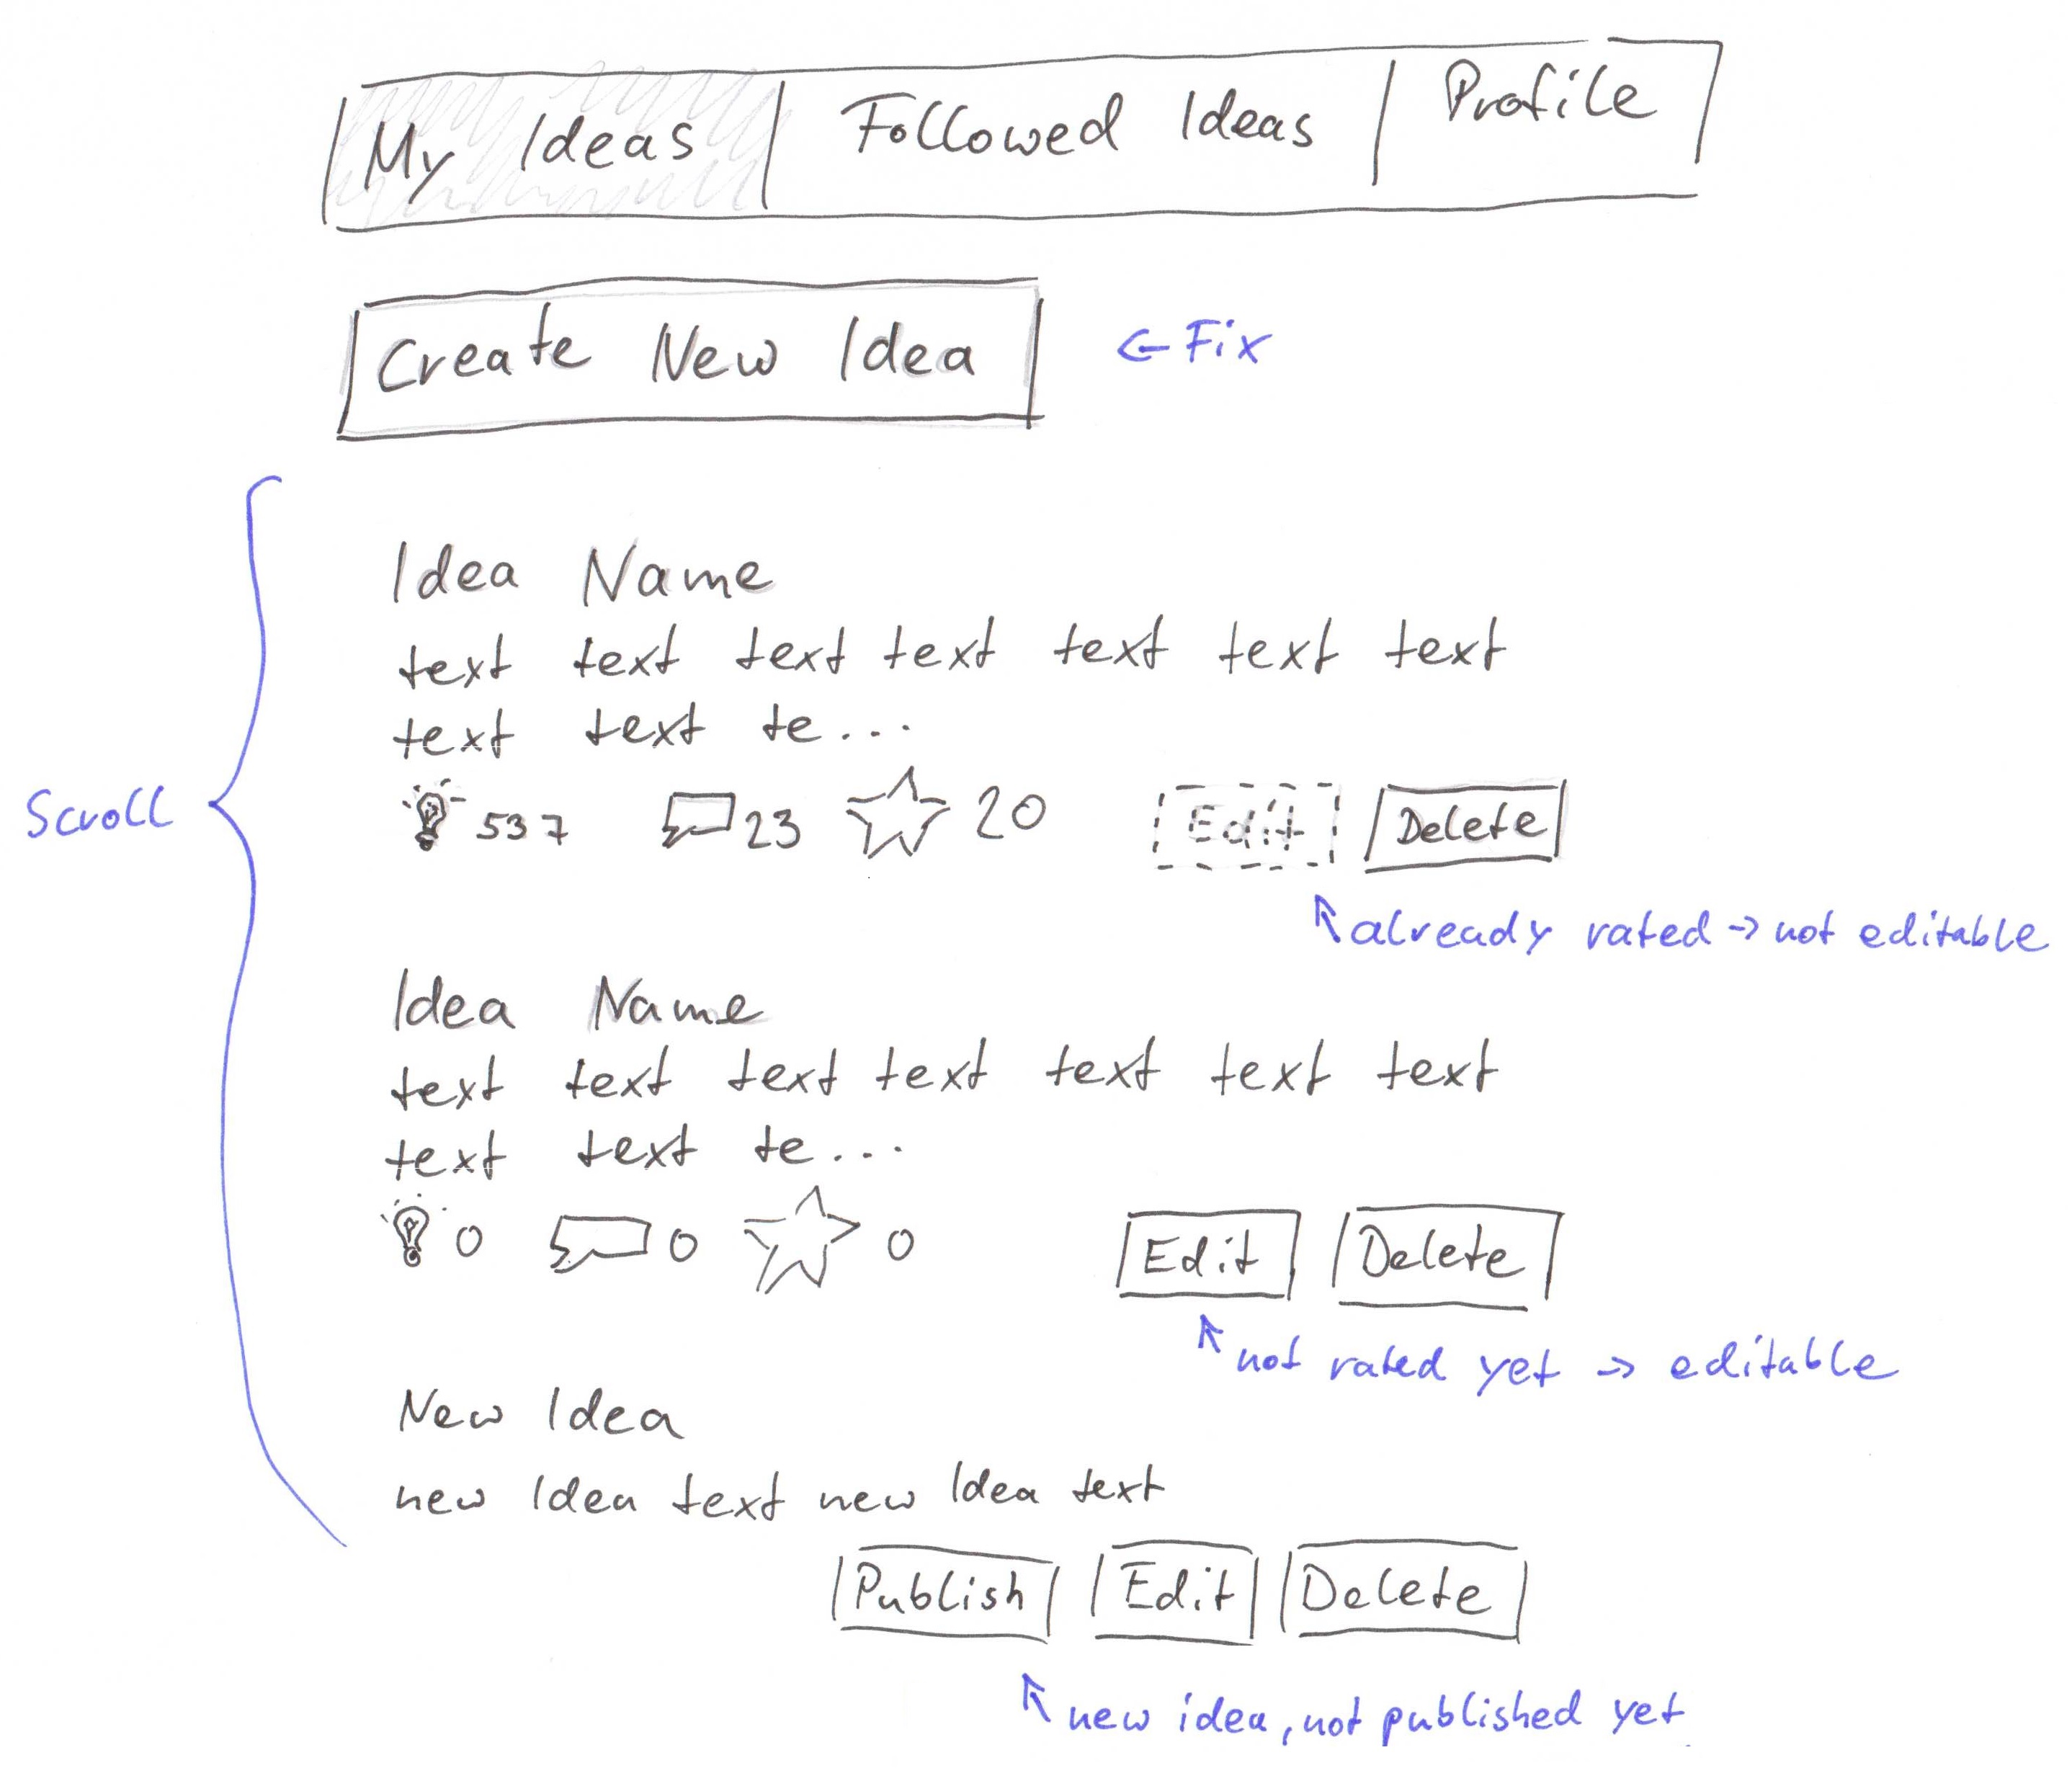 My Ideas Followed Ideas Profile
Create New Idea ← Fix
Idea Name
text text text text text text text
text text te...
537 23 20 Edit Delete
Scroll
↖ already rated → not editable
Idea Name
text text text text text text text
text text te...
0 0 0 Edit Delete
↖ not rated yet → editable
New Idea
new Idea text new Idea text
Publish Edit Delete
↖ new idea, not published yet